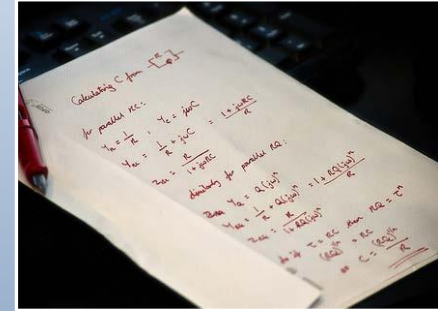 Calculating C from R Q
for parallel RC:
Y_R = 1/R , Y_C = jωC
Y_RC = 1/R + jωC = (1 + jωRC)/R
Z_RC = R/(1 + jωRC)
similarly for parallel RQ:
Y_Q = Q(jω)^n
Y_RQ = 1/R + Q(jω)^n = (1 + RQ(jω)^n)/R
Z_RQ = R/(1 + RQ(jω)^n)
if τ = RC then RQ = τ^n
(RQ)^(1/n) = RC
C = (RQ)^(1/n)/R